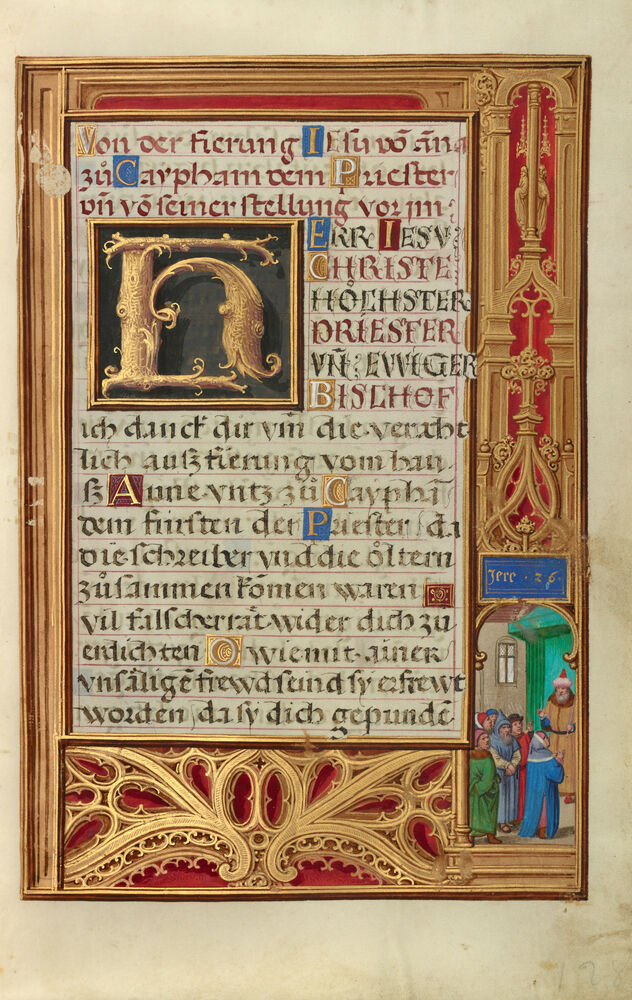 Von der fierung Iesu vō āna
zů Caypham dem Priester
vn̄ vō seiner stellung vor im
HERR IESV
CHRISTE
HÖCHSTER
PRIESTER
VN̄ EWIGER
BISCHOF
ich danck dir vm̄ die veracht
lich ausz fierung vom hau
sz Anne vntz zů Cayphā
dem fürsten der Priester da
die schreiber vnd die öltern
zůsammen kömen waren
vil falscher rät wider dich zu
erdichten O wie mit ainer
vnsäligē frewd seind sy erfrewt
worden da sy dich gepundē
Jere . 26 .
128